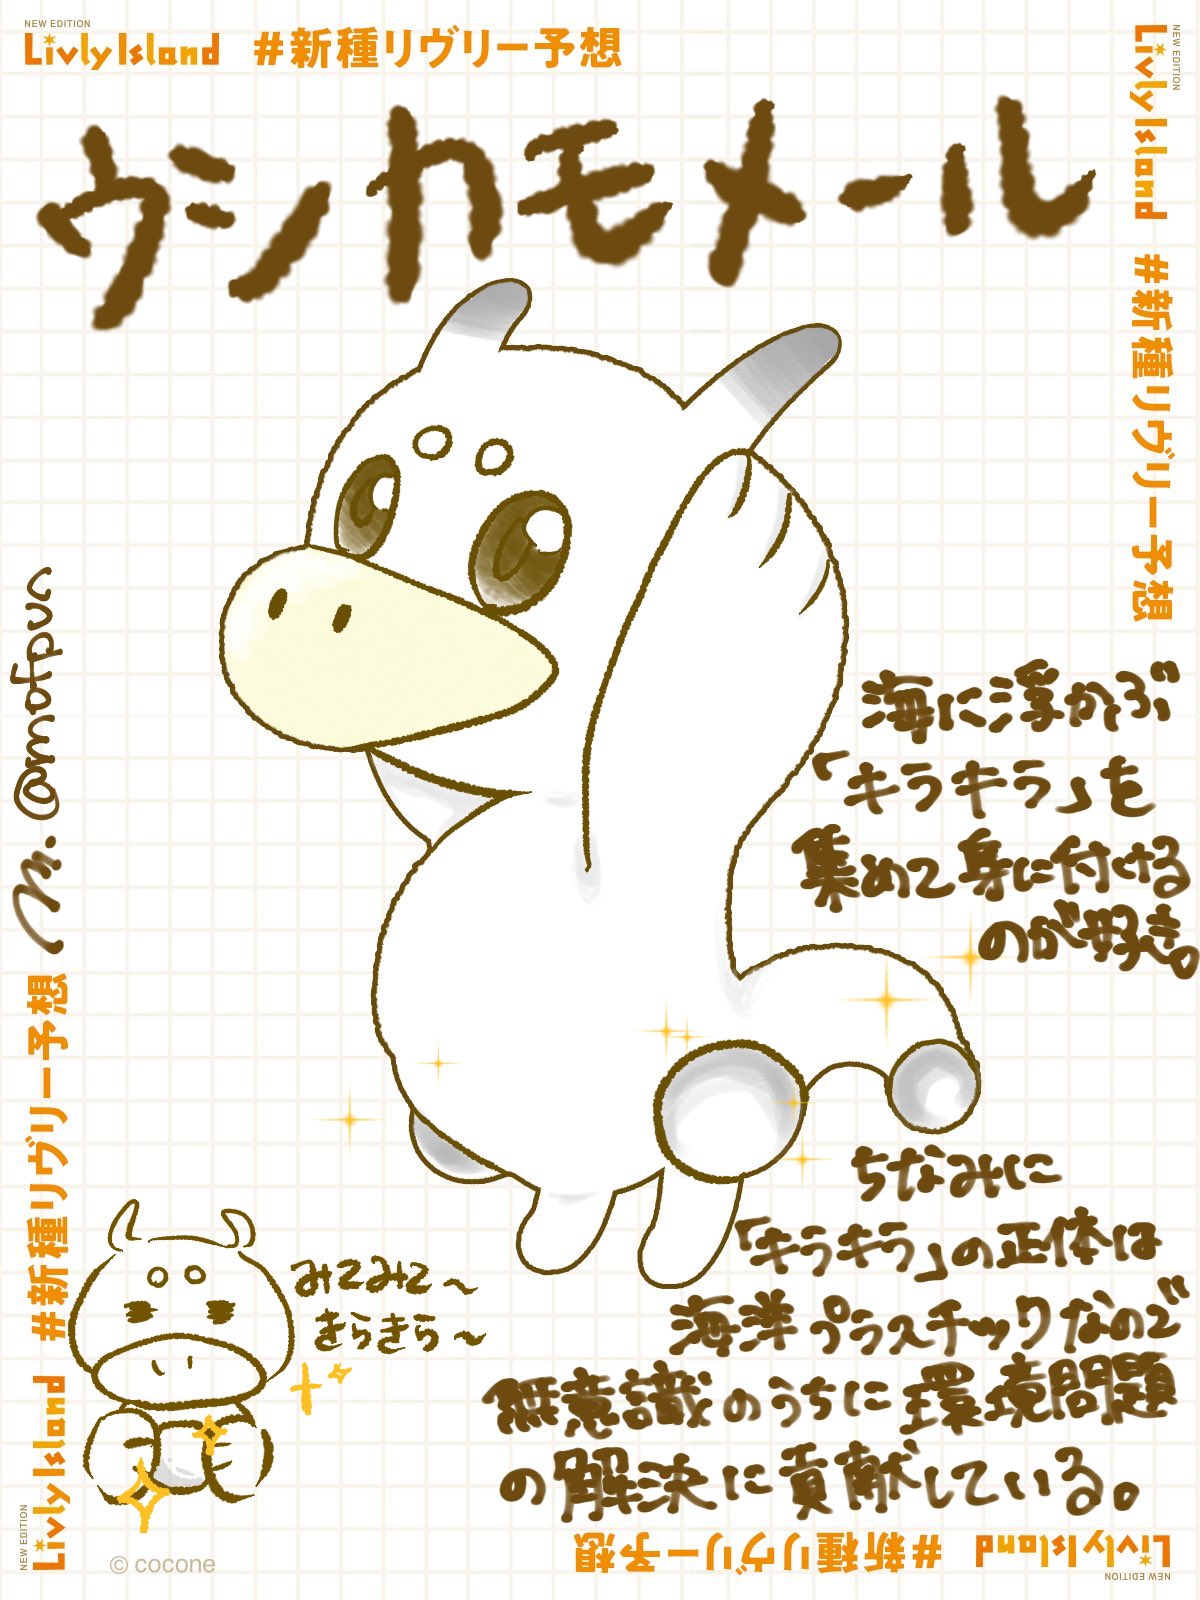 NEW EDITION
Livly Island #新種リヴリー予想
ウシカモメール
NEW EDITION
Livly Island #新種リヴリー予想
海に浮かぶ
「キラキラ」を
集めて身に付ける
のが好き。
ちなみに
「キラキラ」の正体は
海洋プラスチックなので
無意識のうちに環境問題
の解決に貢献している。
みてみて〜
きらきら〜
@mofpun
NEW EDITION
Livly Island #新種リヴリー予想
© cocone
NEW EDITION
Livly Island #新種リヴリー予想